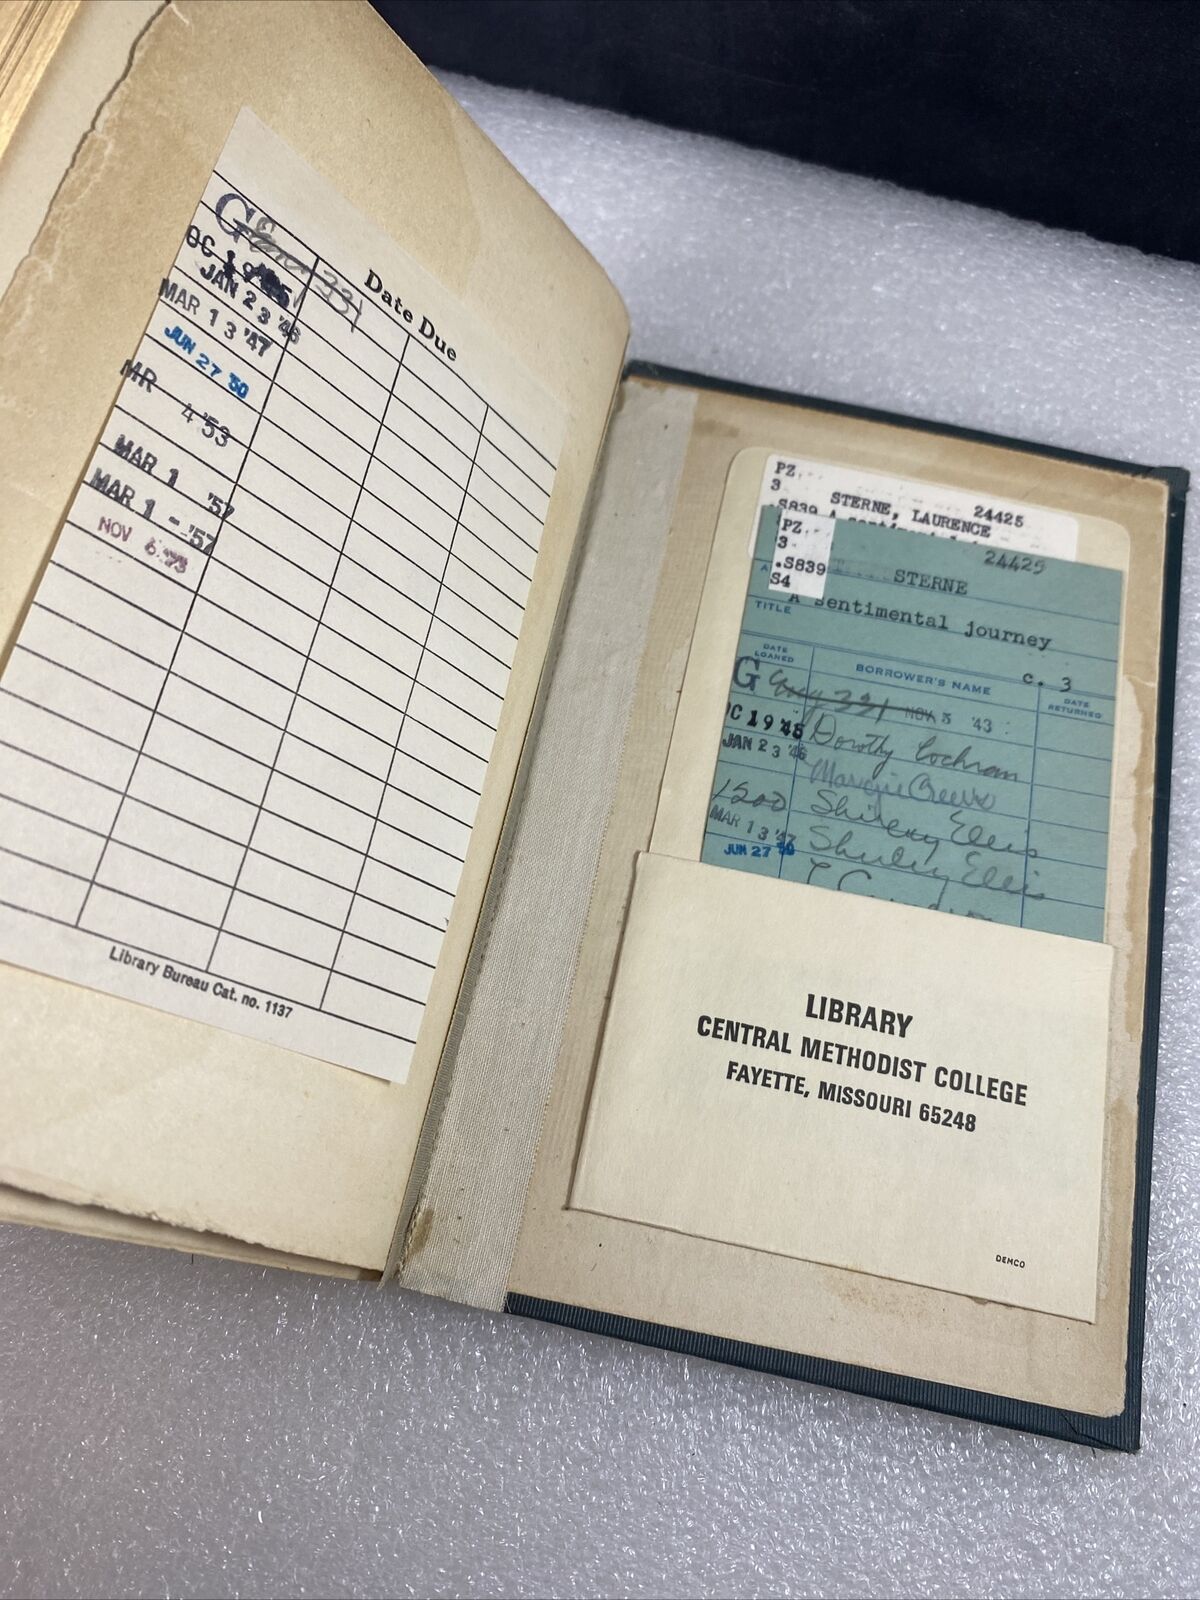 Date Due
G Eng 331
OC 19 '45
JAN 23 '46
MAR 13 '47
JUN 27 '50
MR 4 '53
MAR 1 '57
MAR 1 - '57
NOV 6 '73
Library Bureau Cat. no. 1137
PZ
3 24425
.S839 STERNE, LAURENCE
A
PZ
3 24425
.S839 STERNE
S4
TITLE A Sentimental journey
c. 3
DATE LOANED BORROWER'S NAME DATE RETURNED
G Eng 331 NOV 5 '43
OC 19 '45 Dorothy Cochran
JAN 23 '46 Margie
1200 Shirley Ellis
MAR 13 '47 Shirley Ellis
JUN 27 '50
LIBRARY
CENTRAL METHODIST COLLEGE
FAYETTE, MISSOURI 65248
DEMCO